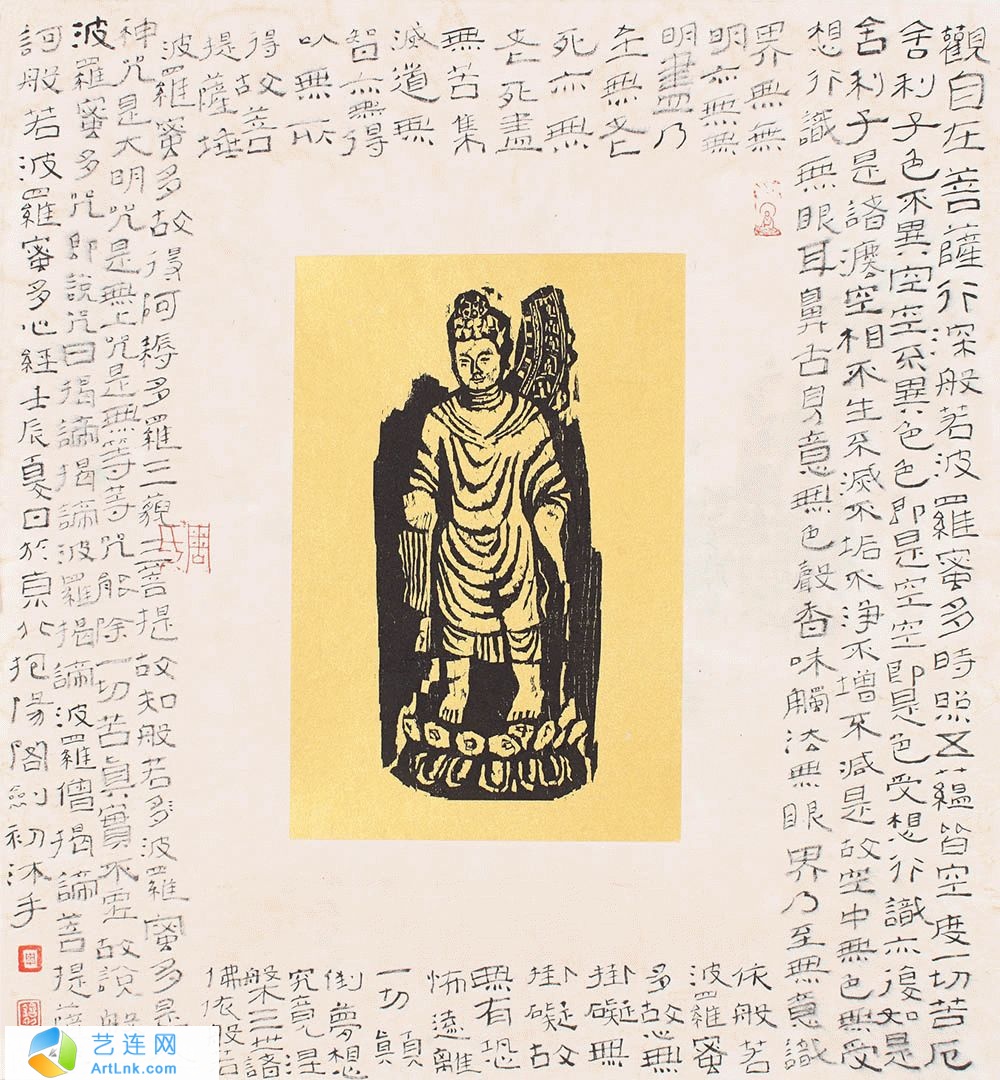 觀自在菩薩行深般若波羅蜜多時照五蘊皆空度一切苦厄
舍利子色不異空空不異色色即是空空即是色受想行識亦復如是
舍利子是諸法空相不生不滅不垢不淨不增不減是故空中無色無受
想行識無眼耳鼻舌身意無色聲香味觸法無眼界乃至無意識
界無無
明亦無無
明盡乃
至無老
死亦無
老死盡
無苦集
滅道無
智亦無得
以無所
得故菩
提薩埵
依般若
波羅蜜
多故心無
掛礙無
掛礙故
無有恐
怖遠離
一切顛
倒夢想
究竟涅
槃三世諸
佛依般若
波羅蜜多故得阿耨多羅三藐三菩提故知般若多波羅蜜多是
神咒是大明咒是無上咒是無等等咒能除一切苦真實不虛故說般
波羅蜜多咒即說咒曰揭諦揭諦波羅揭諦波羅僧揭諦菩提薩
訶般若波羅蜜多心經壬辰夏日於京北抱陽閣劍初沐手
艺连网
ArtLnk.com